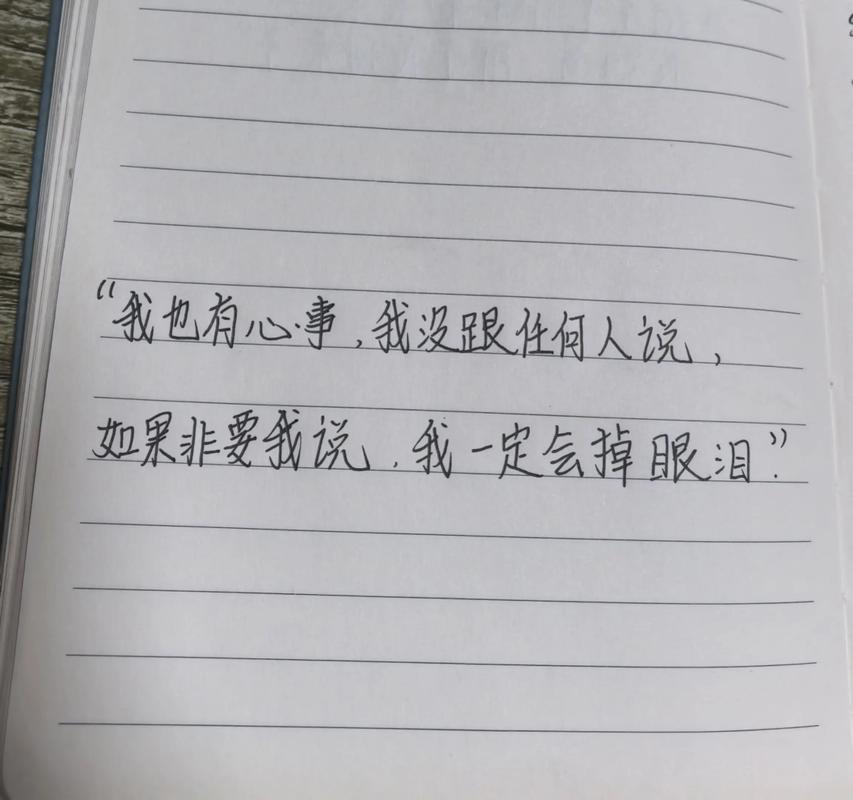 “我也有心事，我没跟任何人说，
如果非要我说，我一定会掉眼泪”.